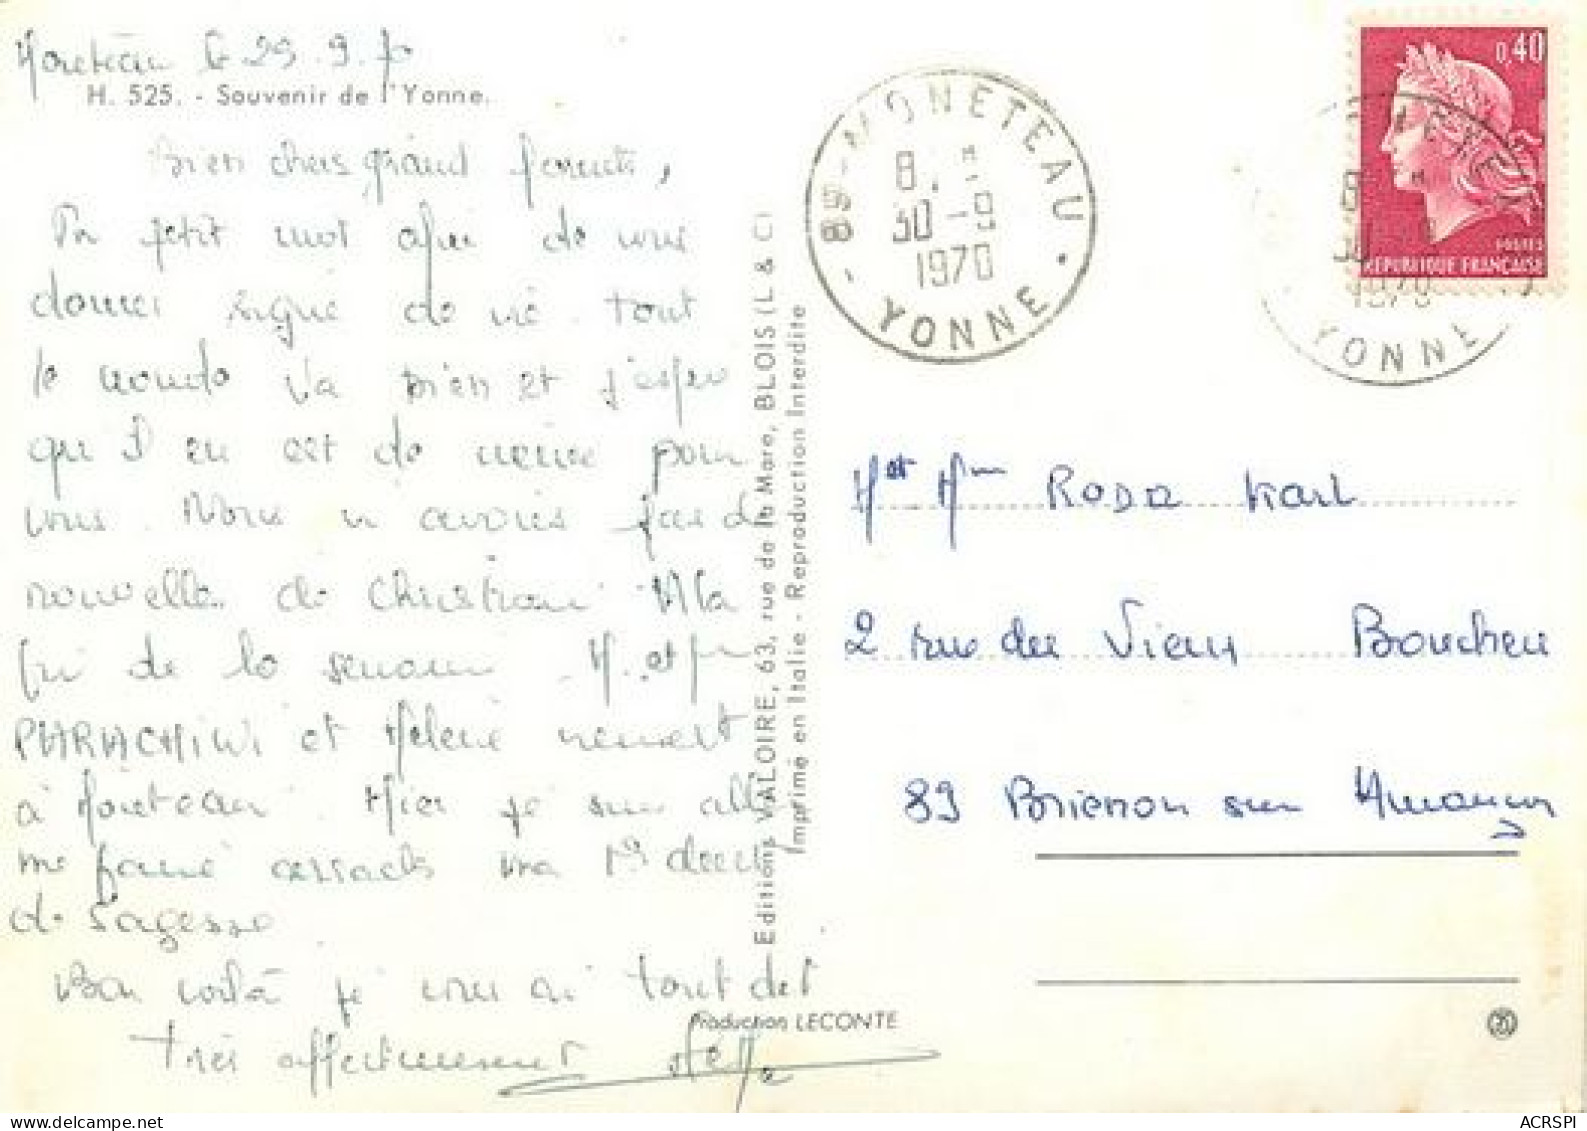 Moneteau le 29.9.70
H. 525. - Souvenir de l'Yonne.
Bien chers grand parents,
Un petit mot afin de vous
donner signe de vie. Tout
le monde va bien et j'espere
qu'il en est de même pour
vous. Nous n'avons pas de
nouvelles de Christian. A la
fin de la semaine M. et Mme
PARACHINI et Helene viennent
à Moneteau. Hier je suis allé
me faire arracher ma 1ère dent
de sagesse
Bon voilà je vous ai tout dit
Très affectueusement
Editions VALOIRE, 63, rue de la Mare, BLOIS (L & C)
Imprimé en Italie - Reproduction Interdite
Production LECONTE
89 - MONETEAU
8
30 - 9
1970
YONNE
0,40
POSTES
REPUBLIQUE FRANÇAISE
8
30
1970
YONNE
M et Mme RODA Karl
2 rue du Vieux Boucher
89 Brienon sur Armançon
ACRSPI